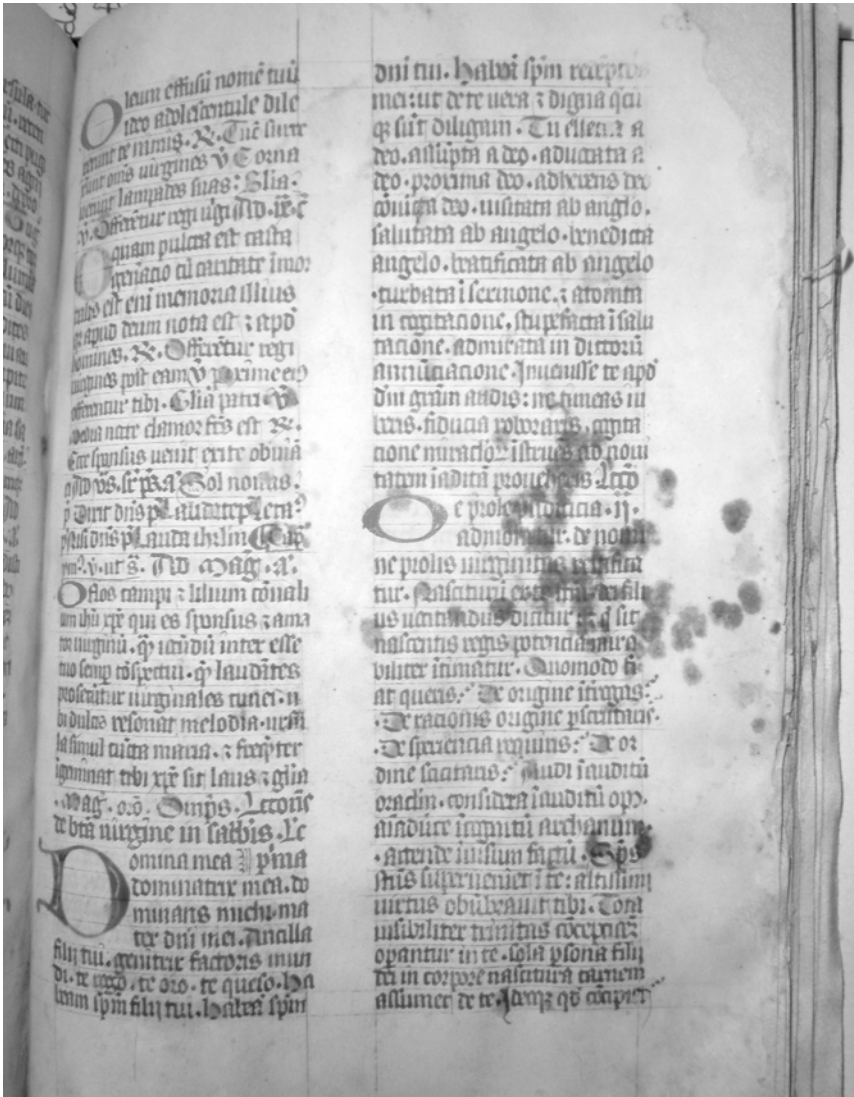 Oleum effusū nomē tuū
ideo adolescentule dile
xerunt te nimis. R. Tūc surre
xerunt om̄s uirgines v̄ Et orna
uerunt lampades suas: Glia.
v. Offerētur regi ūgi Ad
O quam pulcra est casta
gen̄acio cū caritate īmor
talis est eni memoria illius
q̄ apud deum nota est ⁊ apd̄
homines. R. Offerētur regi
uirgines post eam v̄ Proxime ei9
offerentur tibi. Glia patri v̄
Media nocte clamor fc̄s est R.
Ecce sponsus uenit exite obuiā
ei Ad v̄s. Sol nomus.
p̄ Dixit dn̄s p̄ Laudate p̄ Leta9
p̄ Nisi dn̄s p̄ Lauda ihrlm̄ Cap̄
ym9. v. ut s̄. Ad Maḡ. a.
O flos campi ⁊ lilium cōuali
um ihū xp̄e qui es sponsus ⁊ ama
tor uirginū. q̄ iocūdū inter esse
tuo semp̄ cōspectui. q̄ laudātes
prosecūtur uirginales turiei. u
bi dulcis resonat melodia. ursu
la simul cūcta maria. ⁊ freq̄ter
īgeminat tibi xp̄e sit laus ⁊ glia
Maḡ. orō. Omp̄s. Lccōnes
de btā uirgine in sabb̄is. Lc̄
Domina mea p̄ma
dominatrix mea. do
minans michi. ma
ter dn̄i mei. Ancilla
filij tui. genitrix factoris mun
di. te rogo. te oro. te queso. ha
beam sp̄m filij tui. habeā sp̄m
dn̄i tui. habeā sp̄m receptos
mei: ut de te uera ⁊ digna q̄cū
q̄ sūt diligam. Tu electa a
deo. assūpta a deo. aduocata a
deo. proxima deo. adherens deo
cōiūcta deo. uisitata ab anglo.
salutata ab angelo. benedicta
angelo. beatificata ab angelo
turbata ī sermone. ⁊ atonita
in cogitacione. stupefacta ī salu
tacione. admirata in dictorū
annūciacione. Inuenisse te apd̄
dn̄i grām audis: ne timeas iu
beris. fiducia roboraris. cogita
cione miraclo⁊ īstrueris ad noui
tatem inaudita proueheris Lcc̄o
De prole ij.
de nomi
ne prolis uirginitas
tur. Nascituri ex te dei fili
us uocandus dicitur ⁊ q̄ sit
nascentis regis potencia mira
biliter ītimatur. Quomodo fi
at queris: De origine īterogas:
De racionis origine p̄scrutaris.
De experiencia requiris: De or
dine sacitaris: Audi īauditū
oraclm̄. considera īauditū op9.
aīaduerte īcognitū archanum.
attende īuisum factū. Sp̄s
sc̄tūs superueniet ī te: altissimi
uirtus obūbrauit tibi. Tota
īuisibiliter trinitas
operantur in te. sola p̄sona filij
dei in corpore nascitura carnem
assumet de te. Ideoq̄ qd̄ cōcipiet